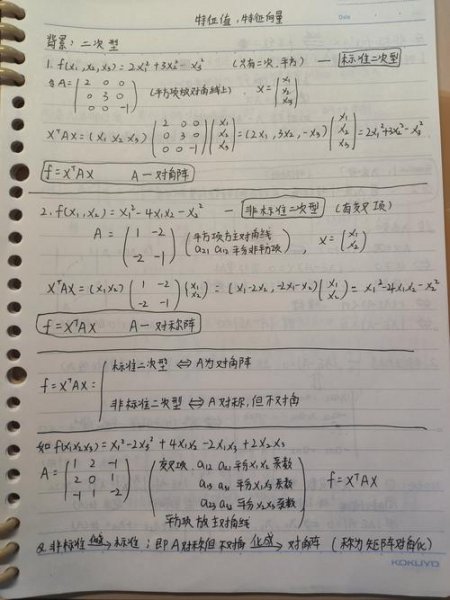 特征值,特征向量
Date
背景:二次型
1. f(x₁,x₂,x₃)=2x₁²+3x₂²-x₃² (只有二次,平方) — 标准二次型
令A=(2 0 0 (平方项放对角线上) x=(x₁
0 3 0 x₂
0 0 -1) x₃)
XᵀAX=(x₁ x₂ x₃)(2 0 0 / 0 3 0 / 0 0 -1)(x₁ / x₂ / x₃)=(2x₁,3x₂,-x₃)(x₁ / x₂ / x₃)=2x₁²+3x₂²-x₃²
f=XᵀAX A—对角阵
2. f(x₁,x₂)=x₁²-4x₁x₂-x₂² — 非标准二次型 (有交叉项)
A=(1 -2 / -2 -1) (平方项为主对角线 / a₂₁ a₁₂平分非平方项) , x=(x₁ / x₂)
XᵀAX=(x₁ x₂)(1 -2 / -2 -1)(x₁ / x₂)=(x₁-2x₂,-2x₁-x₂)(x₁ / x₂)=x₁²-4x₁x₂-x₂²
f=XᵀAX A—对称阵
标准二次型⇔A为对角阵
f=XᵀAX:
非标准二次型⇔A对称,但不对角
如f(x₁x₂x₃)=x₁²-2x₃²+4x₁x₂-2x₁x₃+2x₂x₃
A=(1 2 -1 (交叉项,a₁₂ a₂₁平分x₁x₂系数
2 0 1 a₁₃ a₃₁平分x₁x₃系数 f=XᵀAX
-1 1 -2) a₂₃ a₃₂平分x₂x₃系数
平方项放主对角线)
非标准→标准;即A对称但不对角 化成→对角阵 (称为矩阵对角化)